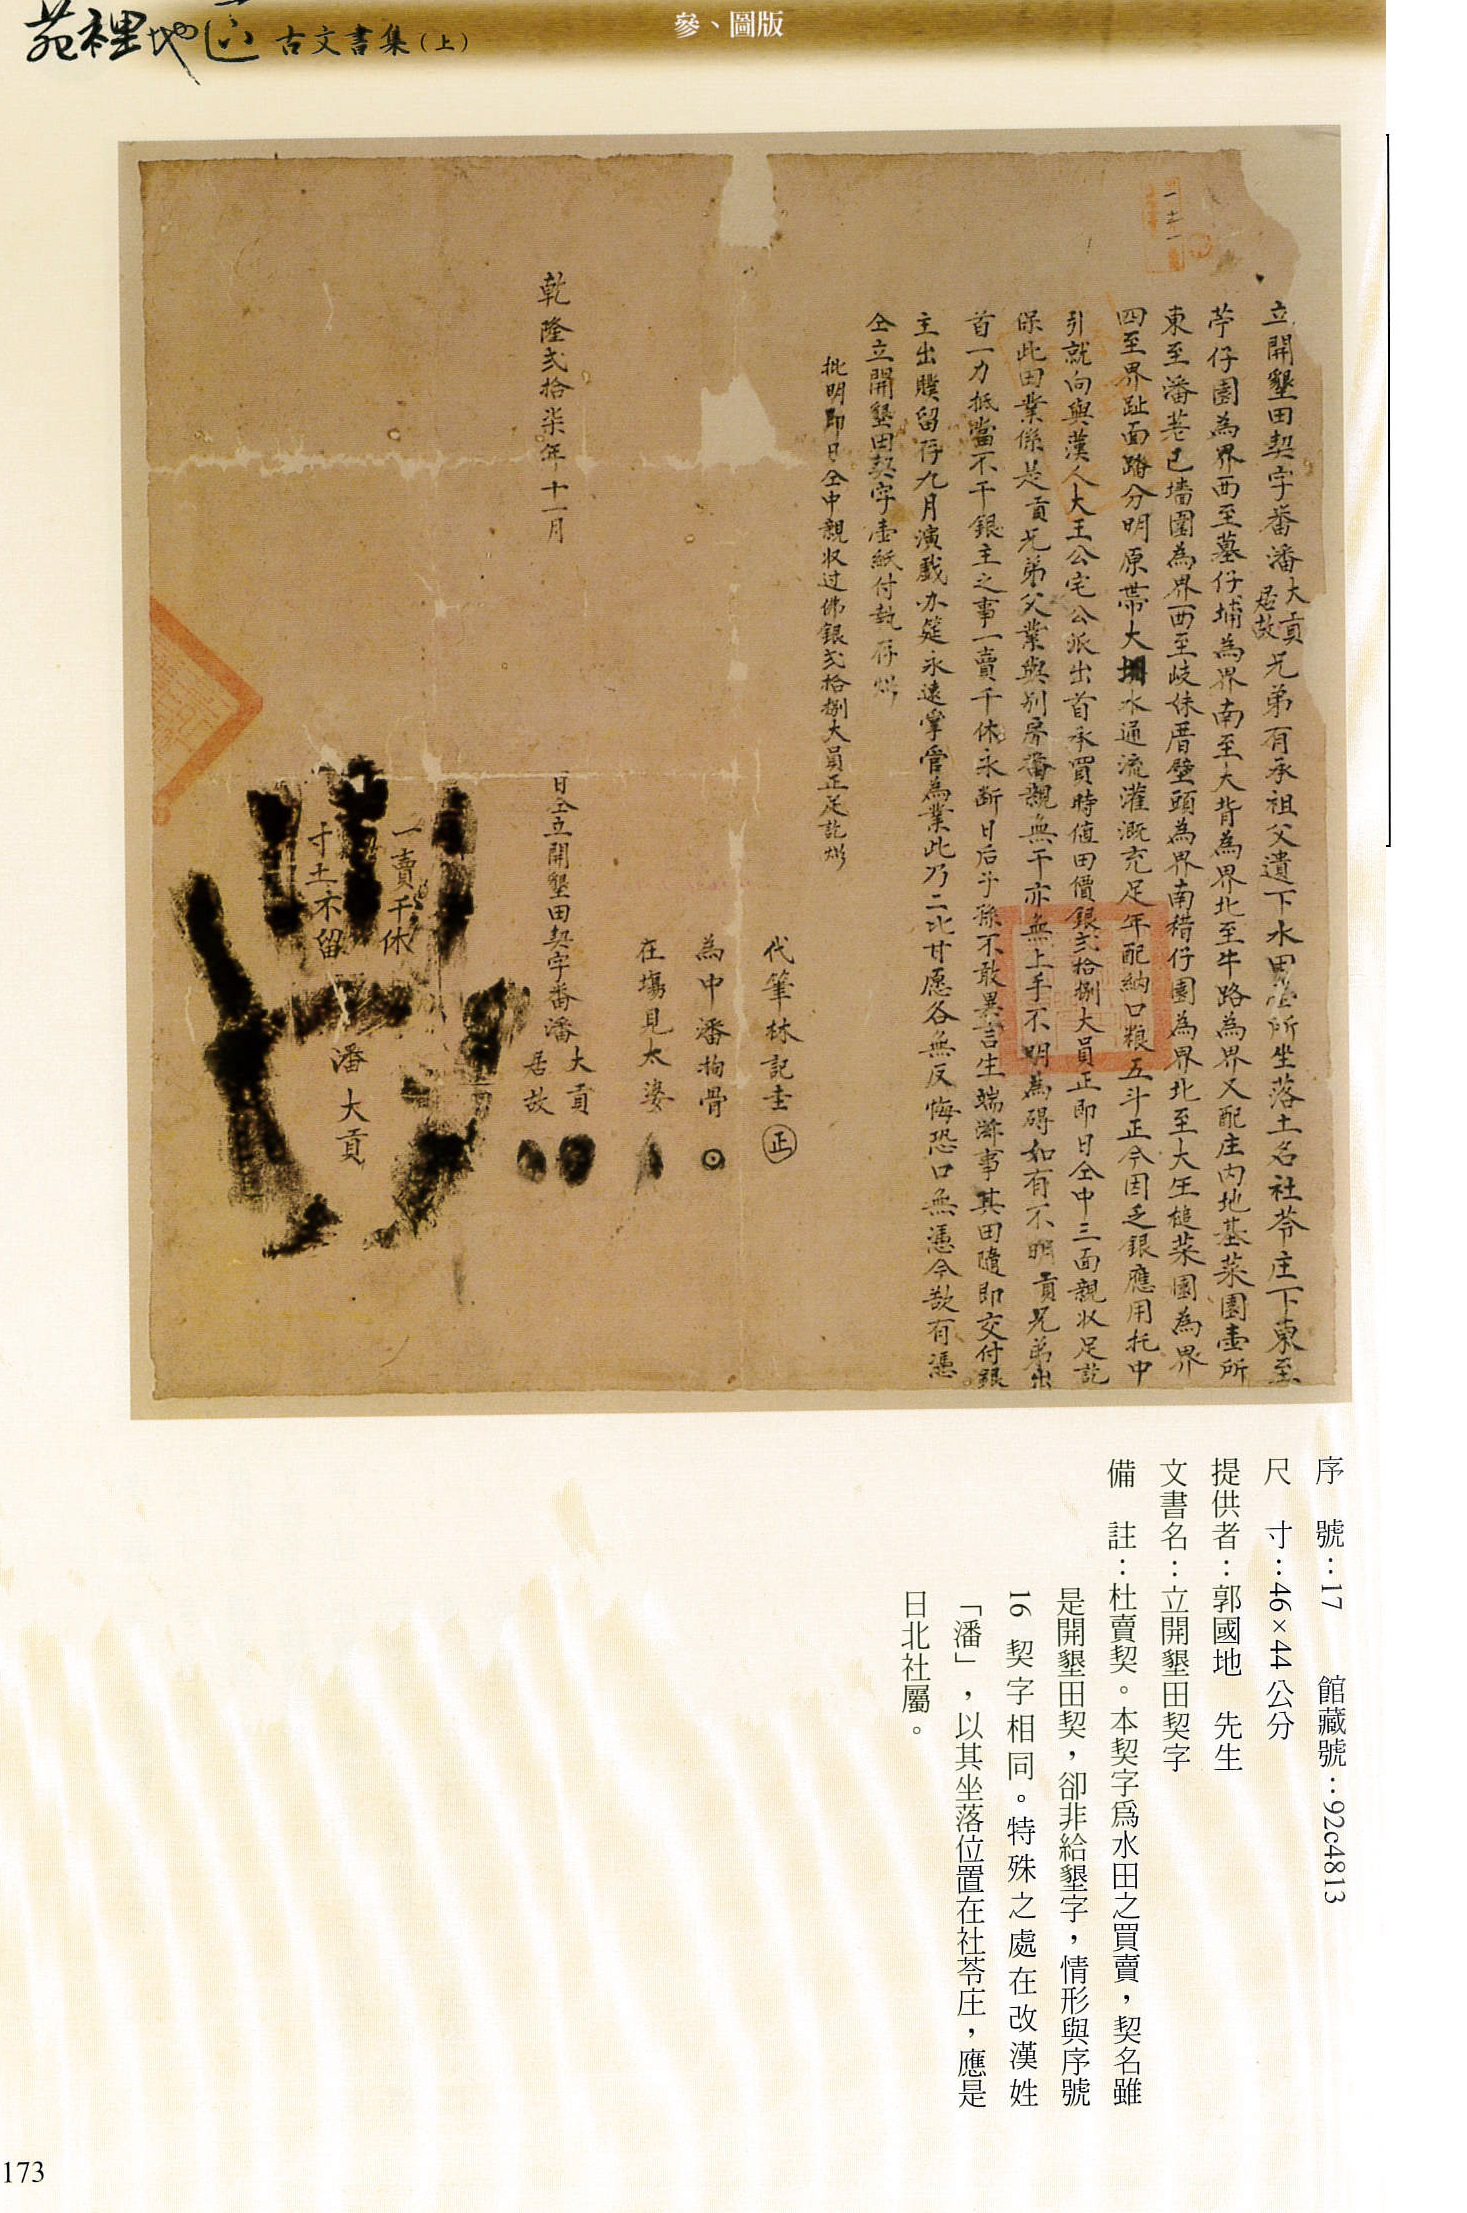 苑裡地區古文書集(上)
參、圖版
立開墾田契字番潘大貢居故兄弟有承祖父遺下水田壹所坐落土名社苓庄下東至
苧仔園為界西至墓仔埔為界南至大背為界北至牛路為界又配庄內地基菜園壹所
東至潘茖已墻圍為界西至歧㑄厝壁頭為界南稓仔園為界北至大玍槌菜園為界
四至界趾面踏分明原帶大圳水通流灌溉充足年配納口粮五斗正今因乏銀應用托中
引就向與漢人大王公宅公派出首承買時值田價銀弍拾捌大員正即日仝中三面親收足訖
保此田業係是貢兄弟父業與別房番親無干亦無上手不明為碍如有不明貢兄弟出
首一力抵當不干銀主之事一賣千休永斷日后子孫不敢異言生端滋事其田隨即交付銀
主出贌留存九月演戲办筵永遠掌管為業此乃二比甘愿各無反悔恐口無憑今欲有憑
仝立開墾田契字壹紙付執存炤
批明即日仝中親收过佛銀弍拾捌大員正足訖炤
代筆林記圭 正
為中潘拘骨
在塲見太婆
乾隆弍拾柒年十一月
日仝立開墾田契字番潘大貢居故
一賣千休
寸土不留
潘大貢
序 號：17 館藏號：92c4813
尺 寸：46×44公分
提供者：郭國地 先生
文書名：立開墾田契字
備 註：杜賣契。本契字爲水田之買賣，契名雖
是開墾田契，卻非給墾字，情形與序號
16 契字相同。特殊之處在改漢姓
「潘」，以其坐落位置在社苓庄，應是
日北社屬。
173